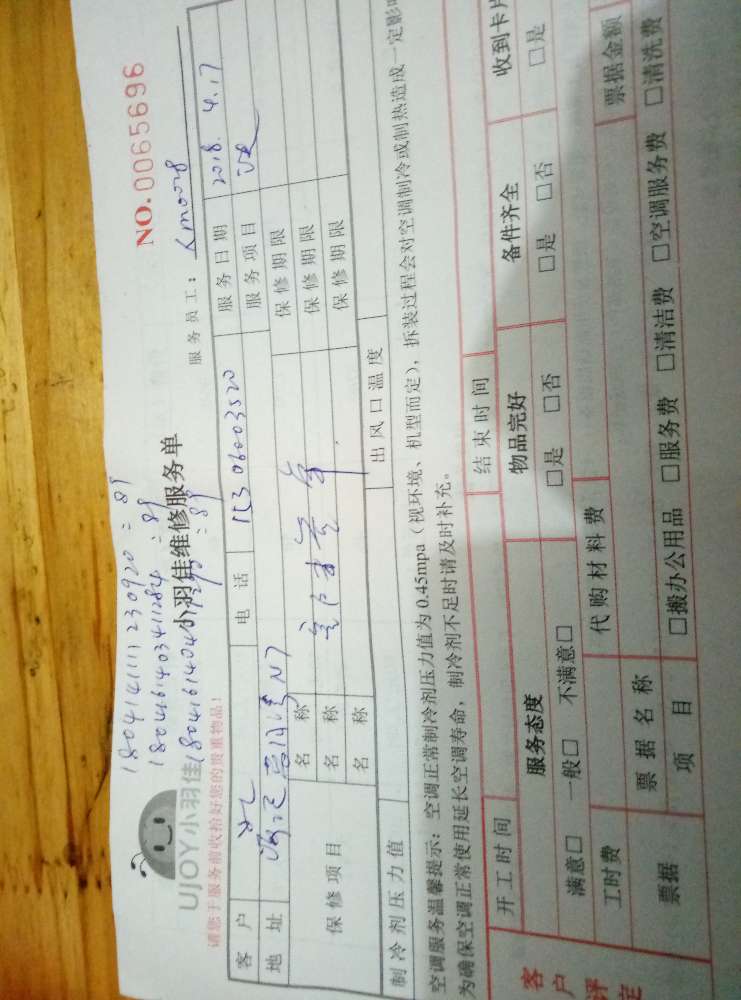 180414111230920 = 89
180416140341284 = 89
NO. 0065696
UJOY小羽佳
小羽佳维修服务单
请您于服务前收拾好您的贵重物品！
服务员工：
客户
电话 15306003520
服务日期 2018.4.17
地址
服务项目
保修项目
名称
保修期限
名称
保修期限
名称
保修期限
制冷剂压力值
出风口温度
空调服务温馨提示：空调正常制冷剂压力值为0.45mpa（视环境、机型而定），拆装过程会对空调制冷或制热造成一定影
为确保空调正常使用延长空调寿命，制冷剂不足时请及时补充。
客户评定
开工时间
结束时间
服务态度
物品完好
备件齐全
收到卡片
满意□ 一般□ 不满意□
□是 □否
□是 □否
□是
工时费
代购材料费
票据
票据名称
票据金额
项目
□搬办公用品 □服务费 □清洁费 □空调服务费 □清洗费